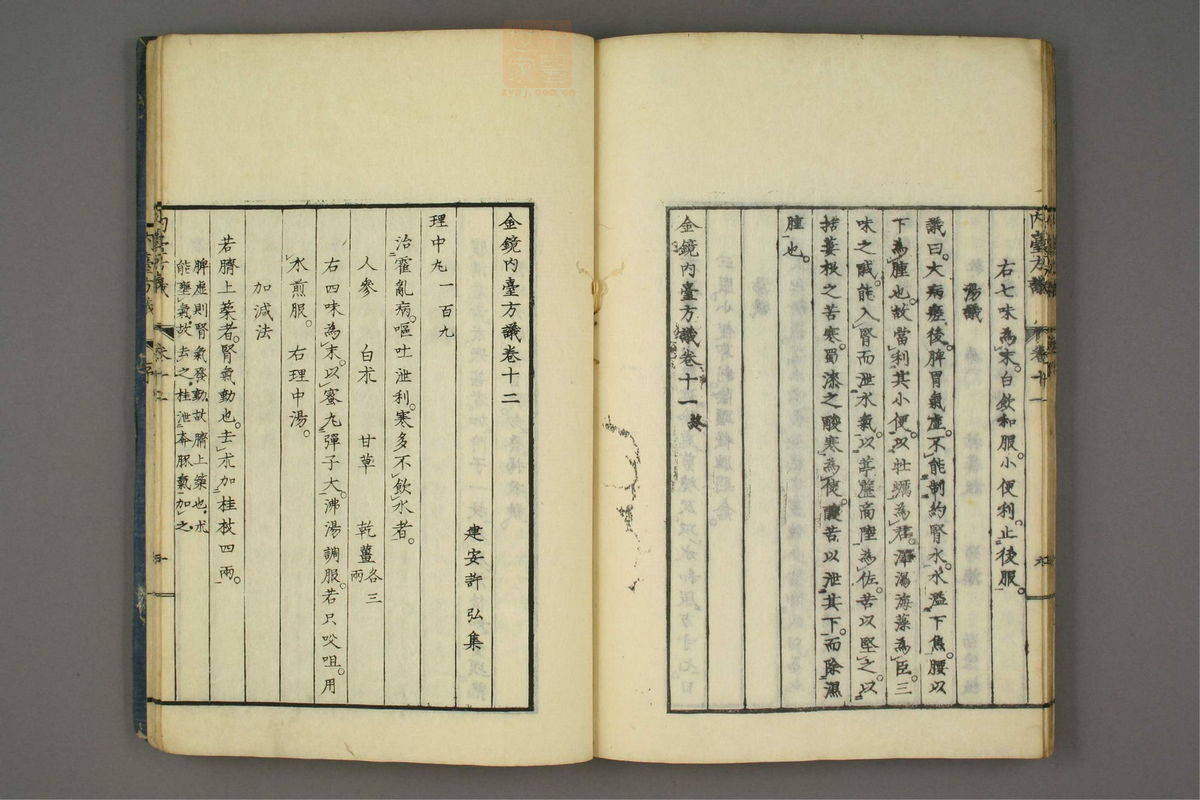 右七味為末。白飲和服。小便利。止後服。
湯議
議曰。大病瘥後。脾胃氣虛。不能制約腎水。水濫下焦。腰以
下為腫也。故當利其小便。以牡蠣為君。澤瀉海藻為臣。三
味之鹹。能入腎而泄水氣。以葶藶商陸為佐。苦以堅之。以
栝蔞根之苦寒。蜀漆之酸寒為使。酸苦以泄其下。而除濕
腫也。
金鏡內臺方議卷十一 終
金鏡內臺方議卷十二
建安許弘集
理中丸一百九
治霍亂病。嘔吐泄利。寒多不飲水者。
人參 白朮 甘草 乾薑各三兩
右四味為末。以蜜丸彈子大。沸湯調服。若只㕮咀。用
水煎服。右理中湯。
加減法
若臍上築者。腎氣動也。去朮加桂枝四兩。
脾虛則腎氣發動。故臍上築也。朮
能壅氣。故去之。桂泄奔豚氣。加之。
內臺方議